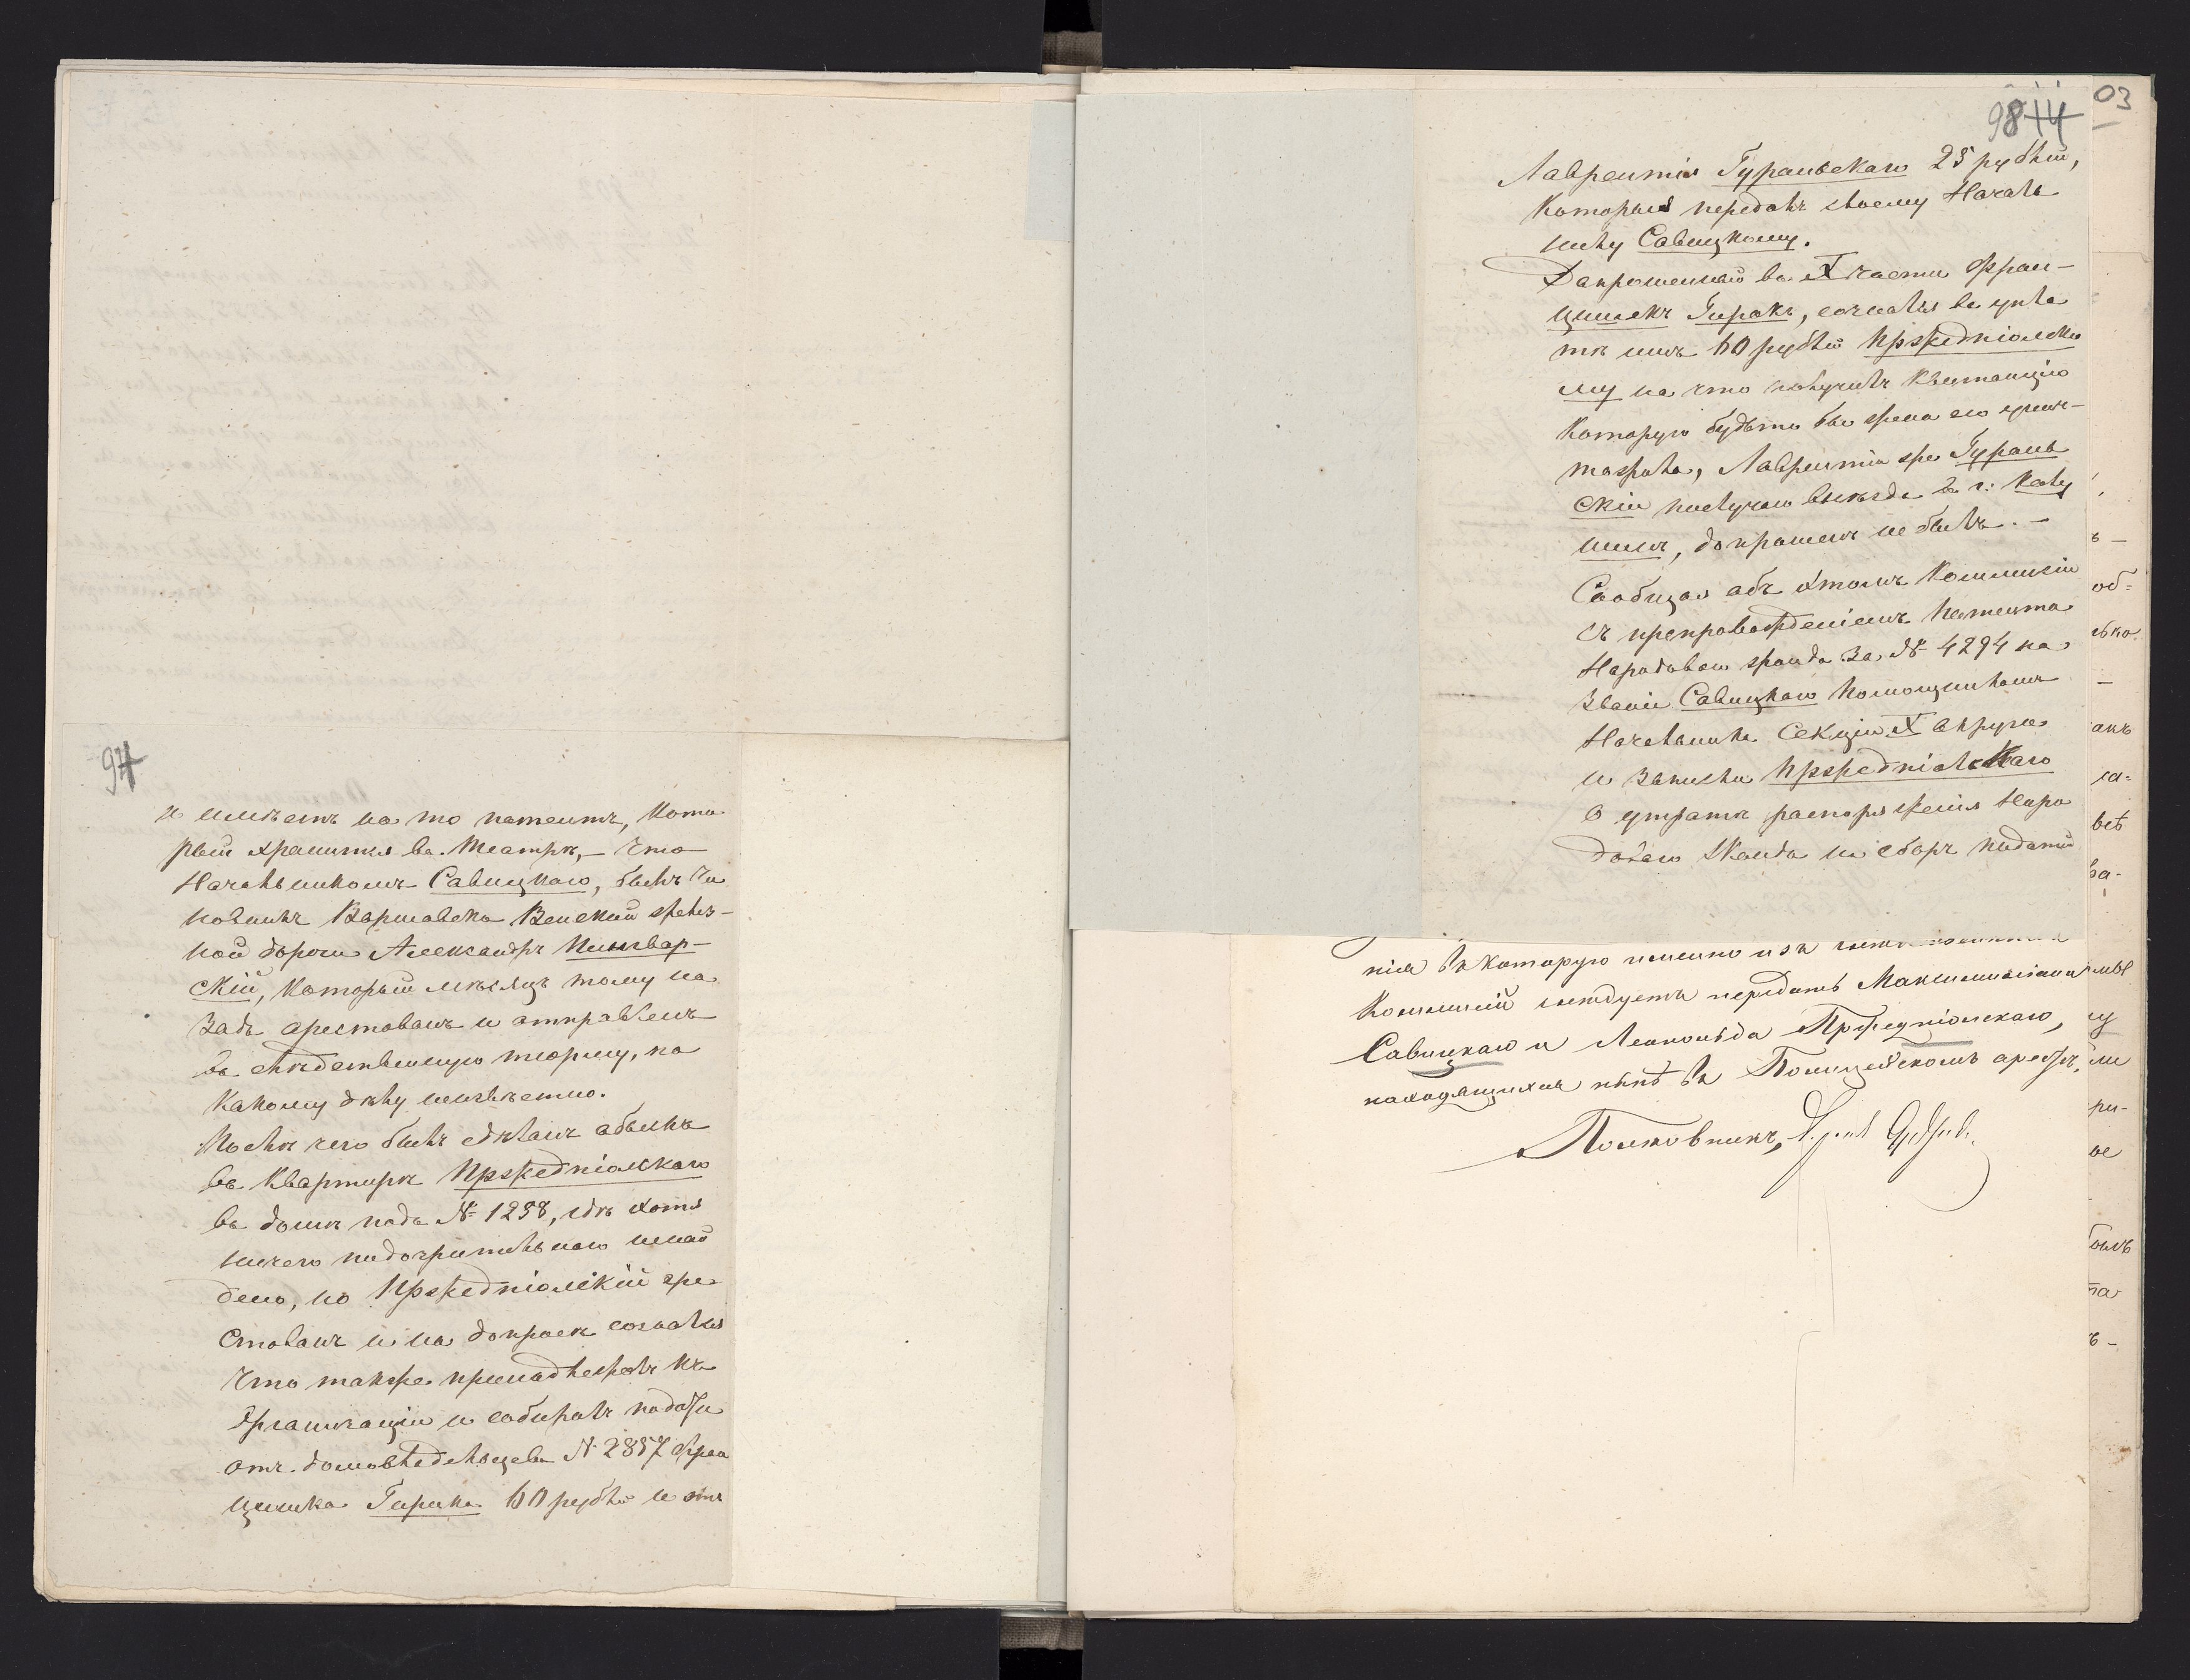 97
и имѣетъ на то патентъ, кото
рый хранится въ театрѣ, – что
Начальникомъ Савицкаго, былъ чи
новникъ Варшавско Венской желѣз-
ной дороги Александръ
скій, который мѣсяцъ тому на
задъ арестованъ и отправленъ
въ слѣдственную тюрму, по
какому дѣлу неизвѣстно.
Послѣ чего былъ сдѣланъ обыскъ
въ квартирѣ Пржедпіолскаго
въ домѣ подъ № 1258, гдѣ хотя
ничего подозрительнаго ненай
дено, но Пржедпіолскій аре
стованъ и на допросѣ сознался
что также принадлежалъ къ
Организаціи и собиралъ подати
отъ домовладѣльцевъ № 2857 Фран
цишка Гирика 60 рублей и отъ
98 114
03
Лаврентія Гуральскаго 25 рублей,
которыя передалъ своему Началь
нику Савицкому.
Допрошенный въ X части Фран-
цишекъ Гиракъ, сознался въ упла
тѣ имъ 60 рублей Пржедпіолско
му на что получилъ квитанцію
которую будьто бы жена его унич-
тожила, Лаврентій же Гураль
скій по случаю выѣзда въ г: Калу
шинъ, допрошенъ не былъ. –
Сообщая объ этомъ Коммисіи
съ препровожденіемъ патента
Народоваго жонда за № 4294 на
званіе Савицкаго помощникомъ
Начальника Секціи X округа
и записки Пржедпіолскаго
о утратѣ распоряженія Наро
доваго жонда на сборъ податей
нія въ которую именно изъ
Коммисій слѣдуетъ передать Максимиліана
Савицкаго и Леопольда Пржедпіолскаго,
находящихся нынѣ въ Полицейскомъ арестѣ.
Полковникъ,